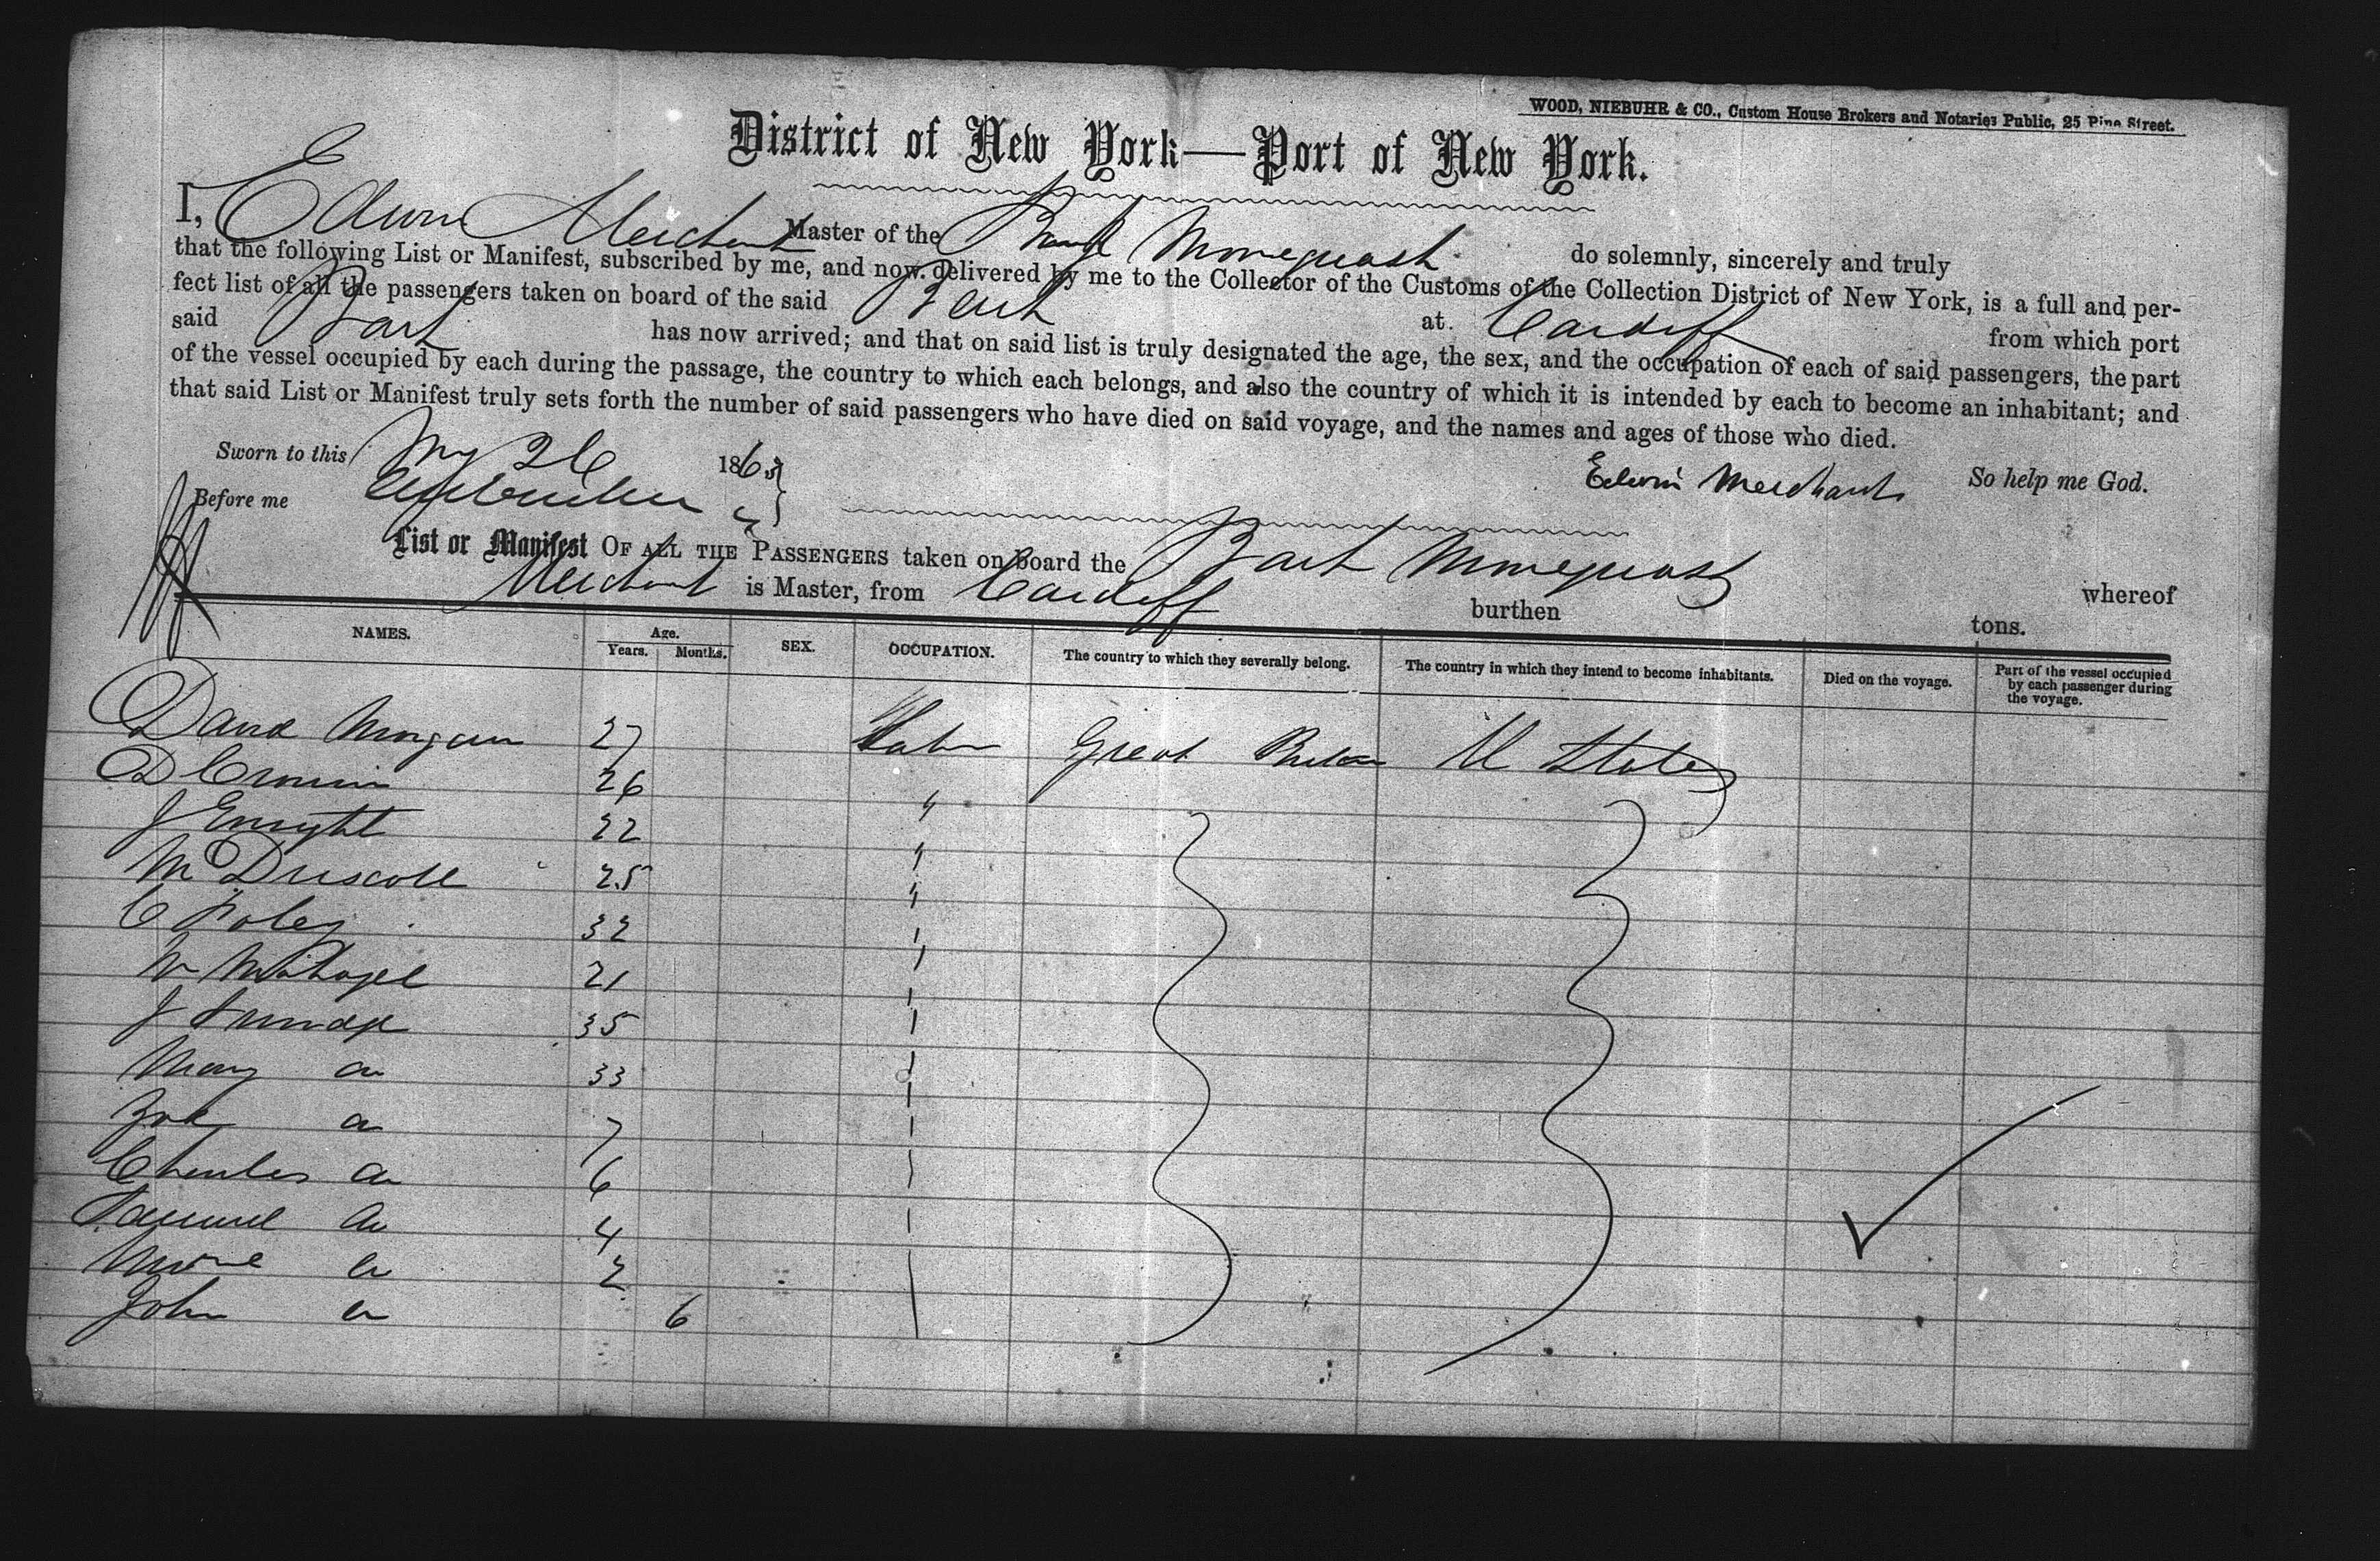 WOOD, NIEBUHR & CO., Custom House Brokers and Notaries Public, 25 Pine Street.
District of New York—Port of New York.
I, Edwin Merchant Master of the Bark Monequash do solemnly, sincerely and truly
that the following List or Manifest, subscribed by me, and now delivered by me to the Collector of the Customs of the Collection District of New York, is a full and per-
fect list of all the passengers taken on board of the said Bark at Cardiff from which port
said Bark has now arrived; and that on said list is truly designated the age, the sex, and the occupation of each of said passengers, the part
of the vessel occupied by each during the passage, the country to which each belongs, and also the country of which it is intended by each to become an inhabitant; and
that said List or Manifest truly sets forth the number of said passengers who have died on said voyage, and the names and ages of those who died.
Sworn to this My 26 1865 Edwin Merchant So help me God.
Before me
List or Manifest OF ALL THE PASSENGERS taken on board the Bark Monequash whereof
Merchant is Master, from Cardiff burthen tons.
NAMES. Age. Years. Months. SEX. OCCUPATION. The country to which they severally belong. The country in which they intend to become inhabitants. Died on the voyage. Part of the vessel occupied by each passenger during the voyage.
David Morgan 27 Great Britain U States
D Cronin 26 "
J Enright 22 "
M Driscoll 25 "
C Foley 32 "
W 21 "
J 35
Mary 33
7
Charles 6
Samuel 4
2
John 6